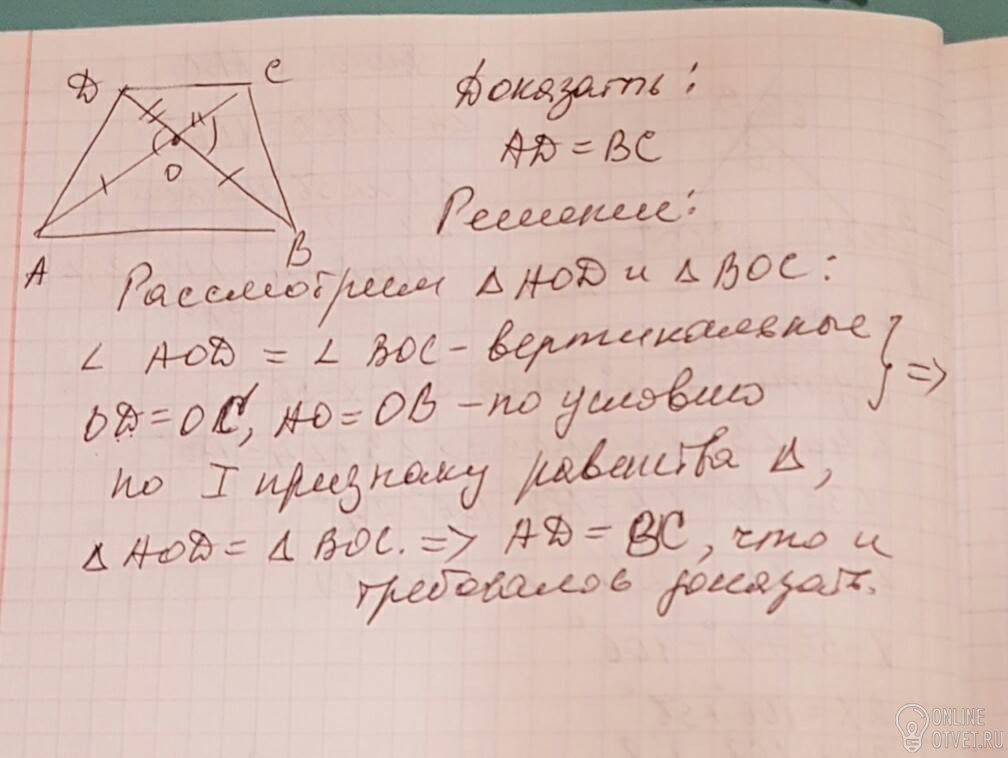 D C
O
A B
Доказать:
AD = BC
Решение:
Рассмотрим Δ AOD и Δ BOC:
∠ AOD = ∠ BOC - вертикальные
OD = OC, AO = OB - по условию } =>
по I признаку равенства Δ,
Δ AOD = Δ BOC. => AD = BC, что и
требовалось доказать.
ONLINE
OTVET.RU